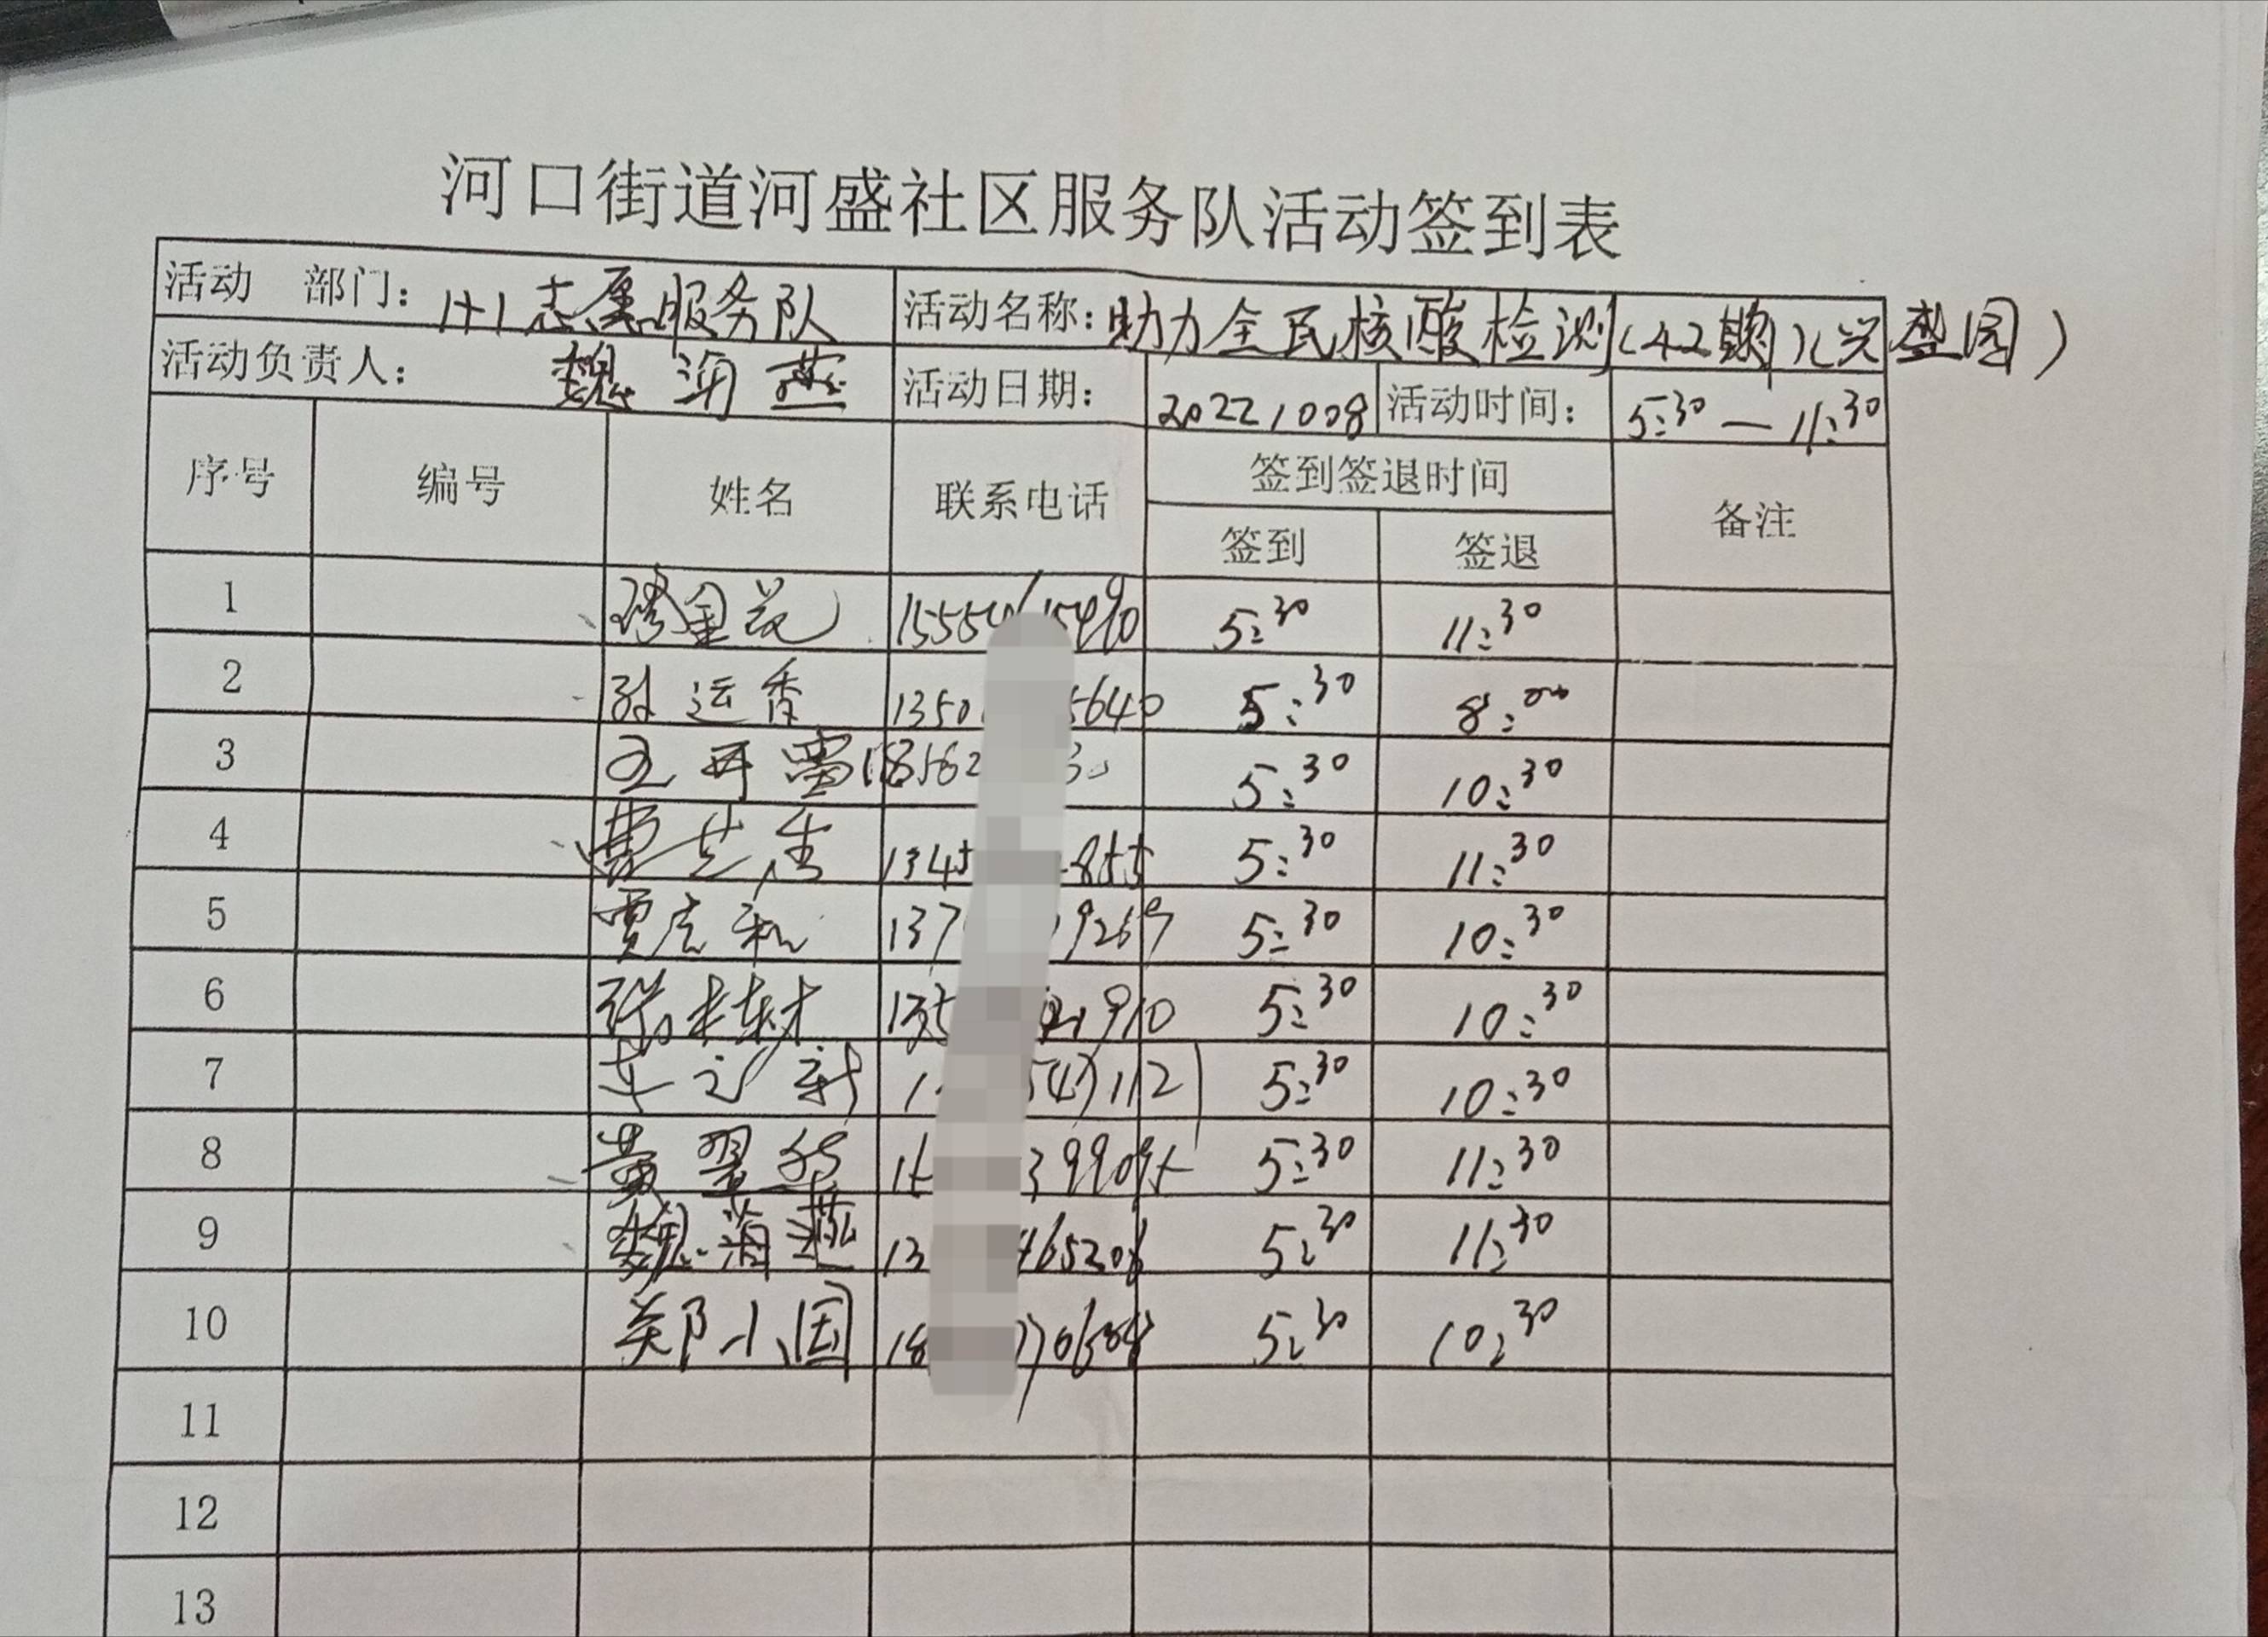 河口街道河盛社区服务队活动签到表
活动 部门： 1+1志愿服务队 活动名称： 助力全民核酸检测(42期)(兴盛园)
活动负责人： 魏海燕 活动日期： 20221008 活动时间： 5:30—11:30
序号 编号 姓名 联系电话 签到签退时间 备注
签到 签退
1 5:30 11:30
2 孙运香 1350 5640 5:30 8:00
3 18562 5:30 10:30
4 曹芝香 1345 855 5:30 11:30
5 贾庆和 137 9269 5:30 10:30
6 910 5:30 10:30
7 5:30 10:30
8 黄翠华 399095 5:30 11:30
9 魏海燕 13 465206 5:30 11:30
10 郑小国 18 5:30 10:30
11
12
13